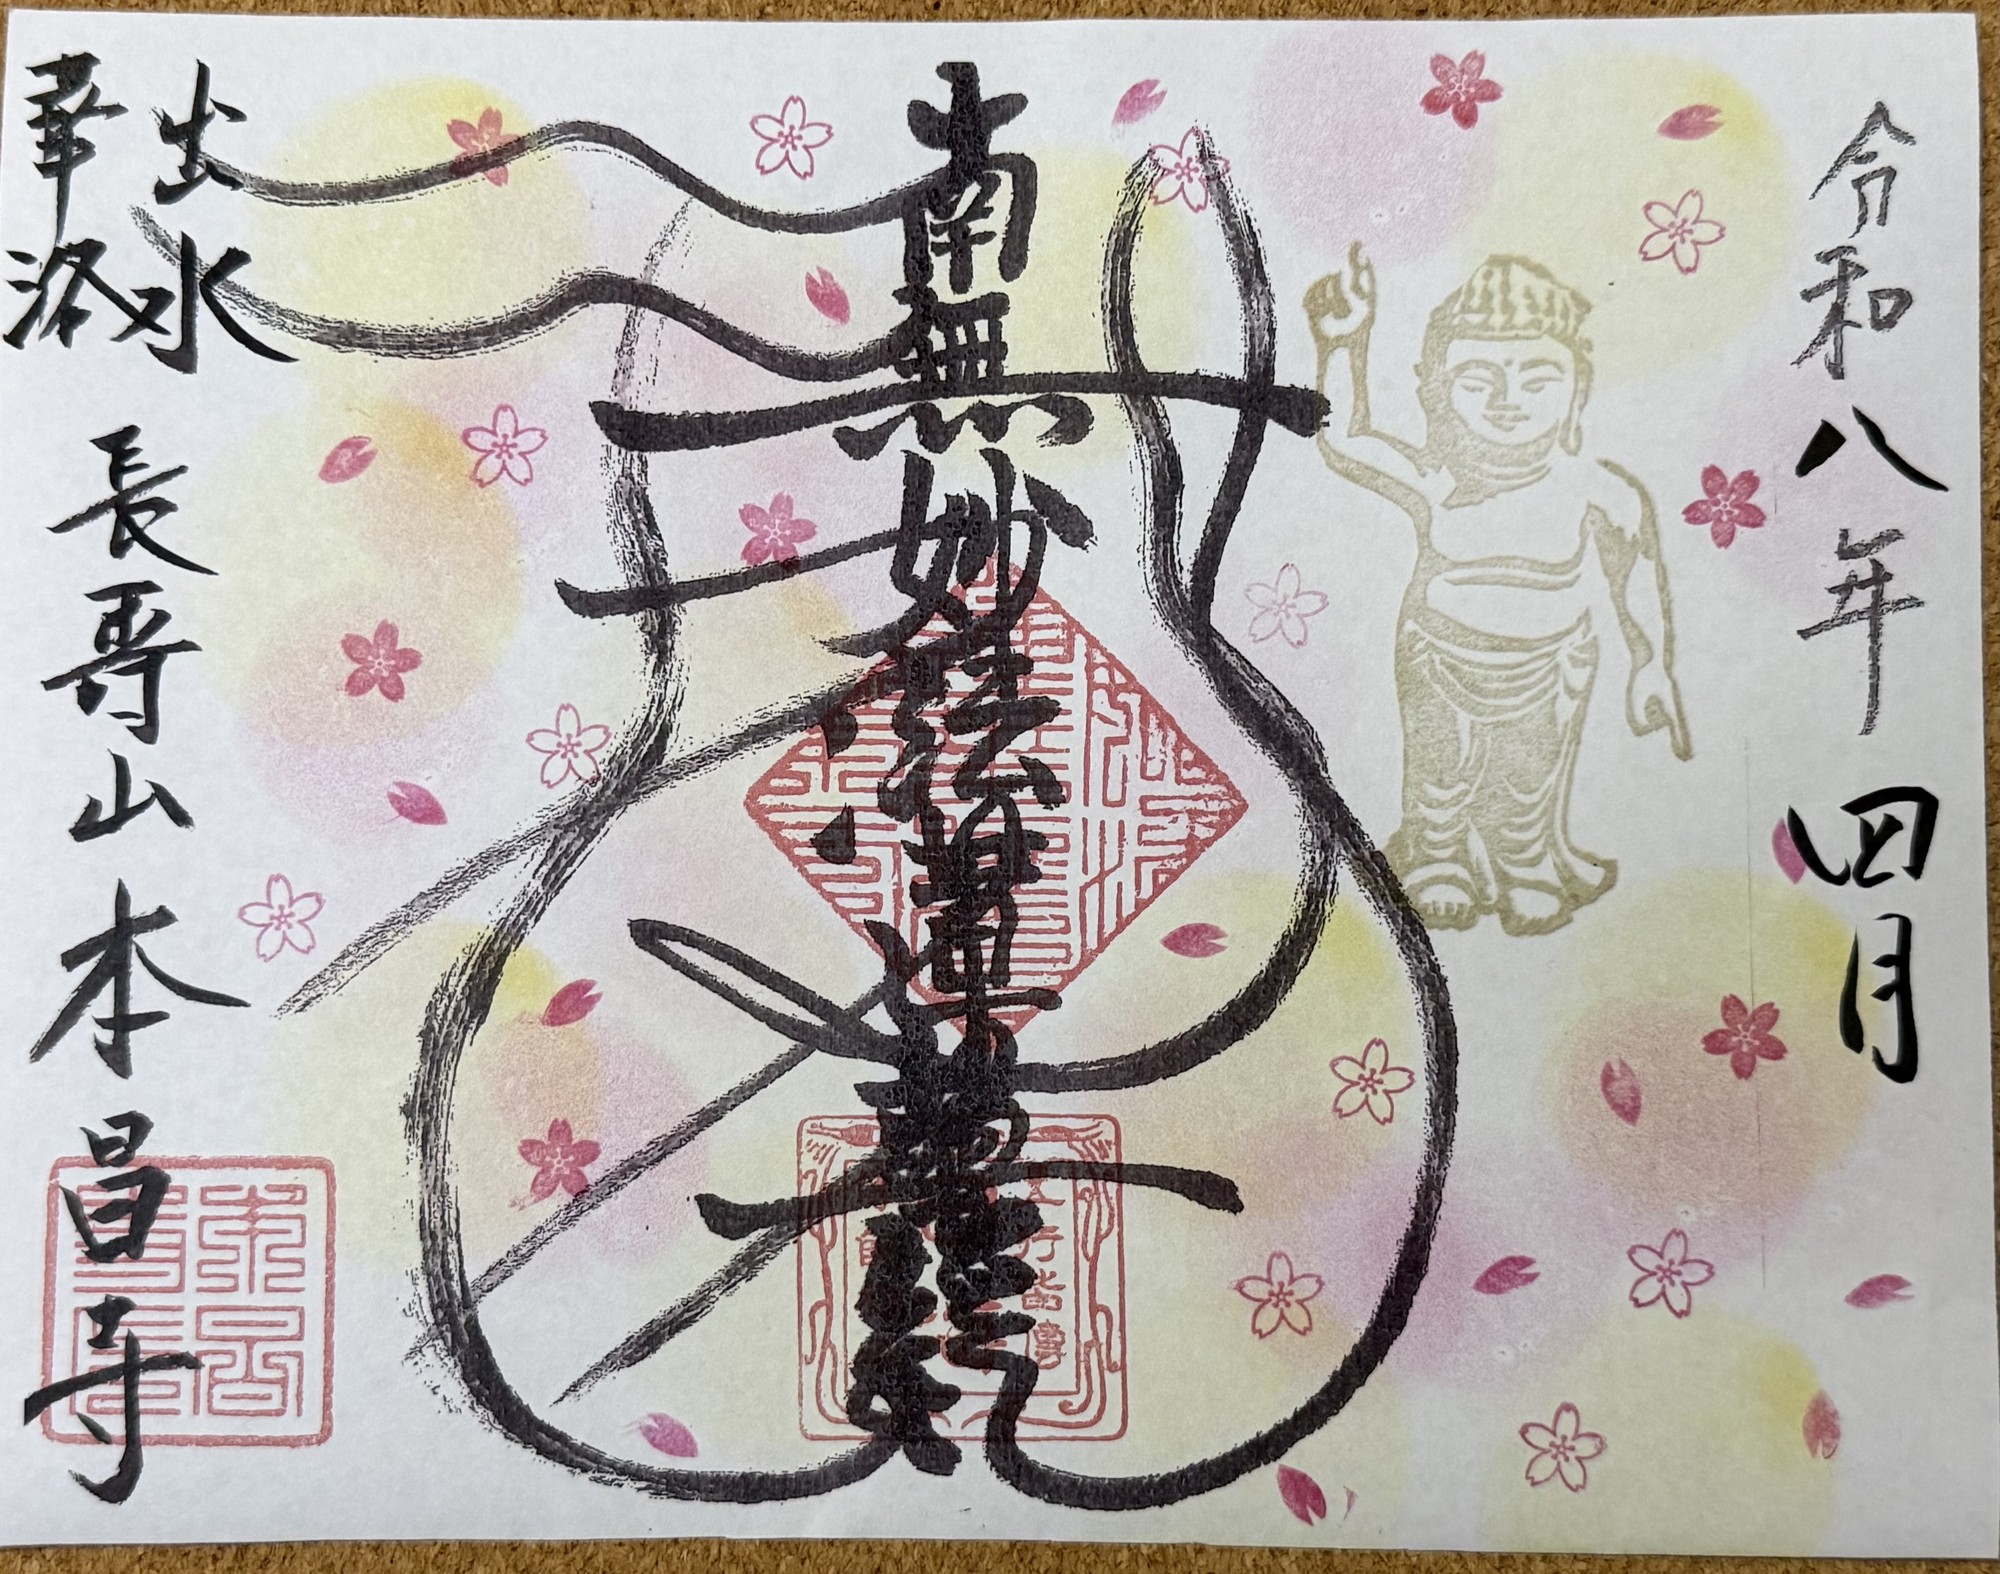 令和八年 四月
南無妙法蓮華経
出水
華洛
長哥山 本昌寺